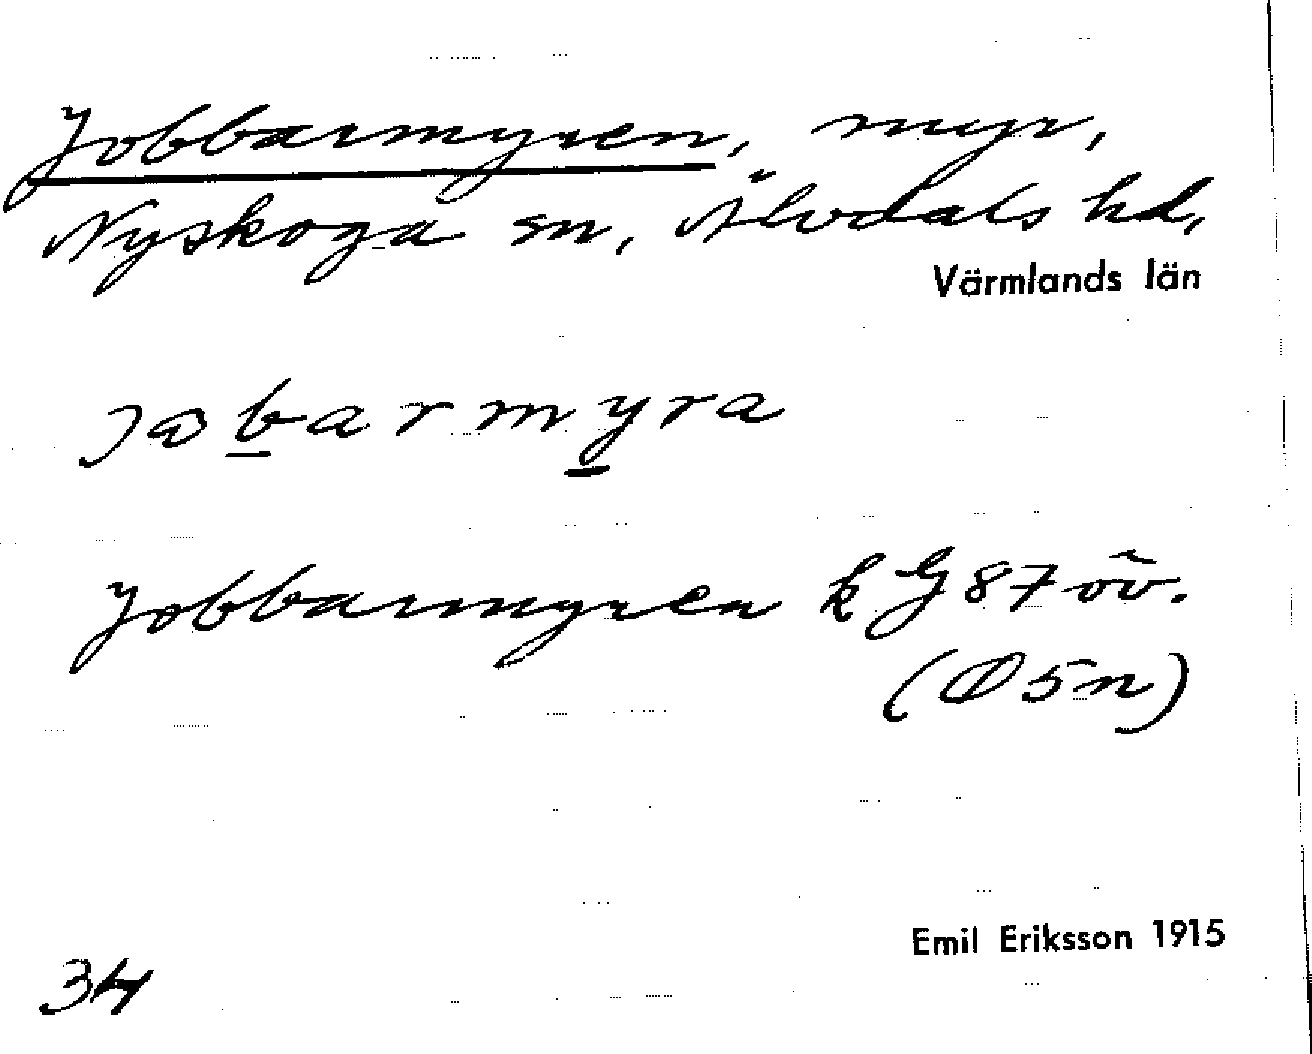 Jobbarmyren, myr,
Nyskoga sn, Älvdals hd,
Värmlands län
Jobbarmyren k G 87 öv.
(Ö 5 n)
34
Emil Eriksson 1915